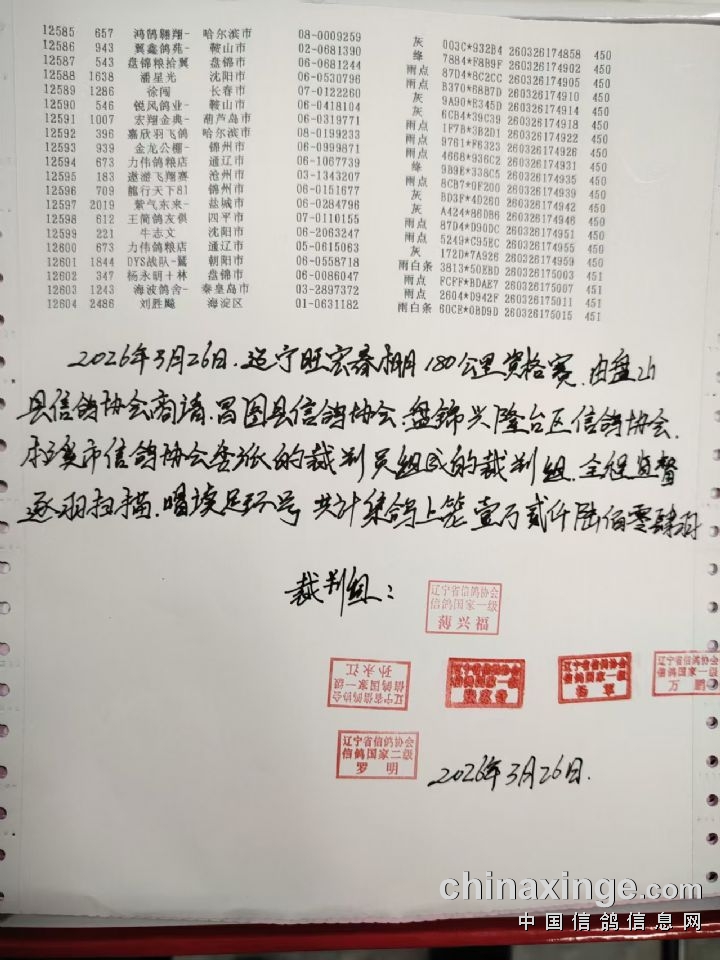 12585 657 鸿鹄翱翔- 哈尔滨市 08-0009259 灰 003C*932B4 260326174858 450
12586 943 翼鑫鸽苑- 鞍山市 02-0681390 绛 7884*F8B9F 260326174902 450
12587 543 盘锦粮拾翼 盘锦市 06-0681244 雨点 87D4*8C2CC 260326174905 450
12588 1638 潘星光 沈阳市 06-0530796 雨点 B370*6BB7D 260326174910 450
12589 1286 徐闯 长春市 07-0122260 灰 9A90*B345D 260326174914 450
12590 546 锐风鸽业- 鞍山市 06-0418104 灰 6CB4*39C39 260326174918 450
12591 1007 宏翔金典- 葫芦岛市 06-0319771 雨点 1F7B*3B2D1 260326174922 450
12592 396 嘉欣羽飞鸽 哈尔滨市 08-0199233 雨点 9761*F6323 260326174926 450
12593 939 金龙公棚- 锦州市 06-0999871 雨点 4668*936C2 260326174931 450
12594 673 力伟鸽粮店 通辽市 06-1067739 绛 9B9E*338C5 260326174935 450
12595 183 遨游飞翔赛 沧州市 03-1343207 雨点 8CB7*0F200 260326174939 450
12596 709 龍行天下81 锦州市 06-0151677 灰 BD3F*4D260 260326174942 450
12597 2019 紫气东来- 盐城市 06-0284796 灰 A424*86DB6 260326174946 450
12598 612 王简鸽友俱 四平市 07-0110155 雨点 87D4*D90DC 260326174951 450
12599 221 牛志文 沈阳市 06-2063247 雨点 5249*C95EC 260326174955 450
12600 673 力伟鸽粮店 通辽市 05-0615063 灰 172D*7A926 260326174959 450
12601 1844 DYS战队-鷲 朝阳市 06-0558718 雨白条 3813*50EBD 260326175003 451
12602 347 杨永明十林 盘锦市 06-0086047 雨点 FCFF*BDAE7 260326175007 451
12603 1243 海波鸽舍- 秦皇岛市 03-2897372 雨点 2604*D942F 260326175011 451
12604 2486 刘胜飚 海淀区 01-0631182 雨白条 60CE*0BD9D 260326175015 451
2026年3月26日.辽宁旺宏春棚180公里资格赛.由盘山
县信鸽协会商请.昌图县信鸽协会.盘锦兴隆台区信鸽协会.
市信鸽协会委派的裁判员组成的裁判组.全程监督
逐羽扫描.唱读足环号 共计集鸽上笼壹万贰仟陆佰零肆羽
裁判组:
辽宁省信鸽协会
信鸽国家一级
薄兴福
辽宁省信鸽协会
信鸽国家一级
孙永江
辽宁省信鸽协会
信鸽国家一级
辽宁省信鸽协会
信鸽国家一级
杨军
辽宁省信鸽协会
信鸽国家一级
万
辽宁省信鸽协会
信鸽国家二级
罗明
2026年3月26日.
chinaxinge.com
中国信鸽信息网